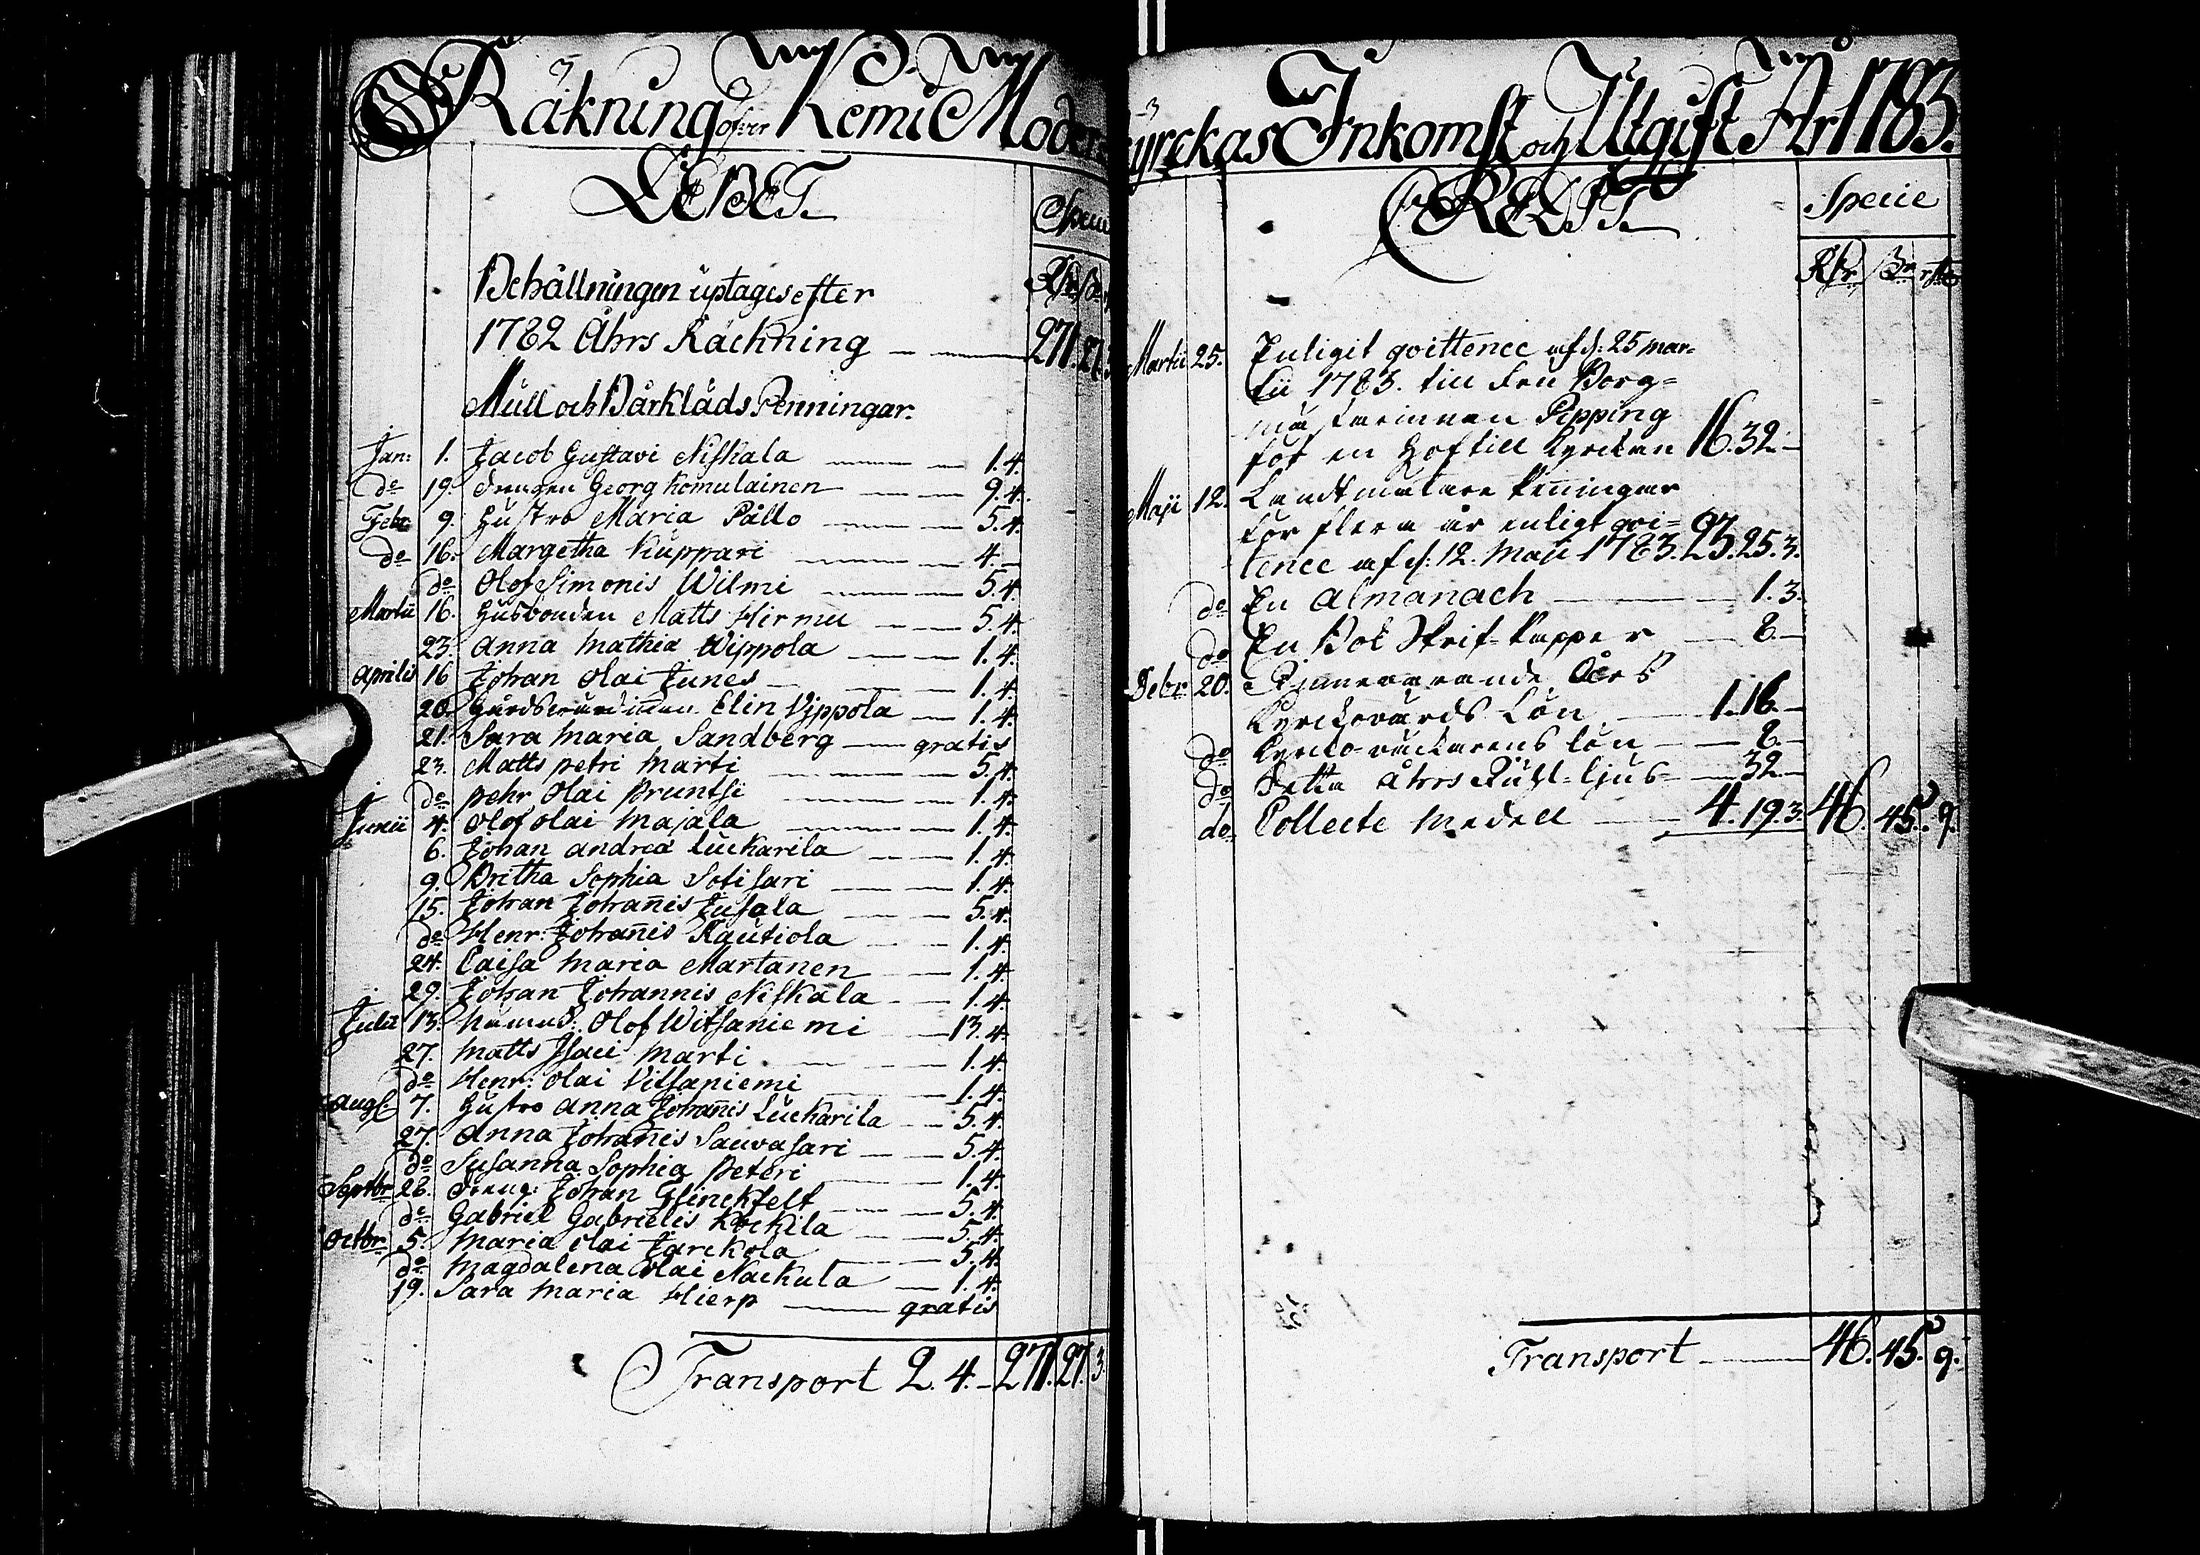 Räkning öfver Kemi Moder
DEBET.
Specie
Behållningen uptages efter
1782 Åhrs Räckning 271. 27. 3
Mull och Bårkläds Penningar.
Jan: 1. Jacob Gustavi Niskala 1. 4.
do 19. Drengen Georg Komulainen 9. 4.
Febr. 9. Hustro Maria Pállo 5. 4.
do 16. Margetha Kuppari 4.
do Olof Simonis Wilmi 5. 4.
Martii 16. Husbonden Matts Hirmu 5. 4.
23. Anna Mathiæ Wippola 1. 4.
Aprilis 16 Johan Olai Junes 1. 4.
20. Gårdsvärdinnan Elin Vippola 1. 4.
21. Sara Maria Sandberg gratis
23. Matts petri Marti 5. 4.
do pehr Olai Pruntsi 1. 4.
Junii 4. Olof Olai Majala 1. 4.
6. Johan Andreæ Luckarila 1. 4.
9. Britha Sophia Sotisari 1. 4.
15. Johan Johan̄is Jusala 5. 4.
do Henr: Johan̄is Rautiola 1. 4.
24. Caisa Maria Martanen 1. 4.
29. Johan Johannis Niskala 1. 4.
Julii 13. Olof Witsaniemi 13. 4.
27. Matts Isaci Marti 1. 4.
do Henr: Olai Vitsaniemi 1. 4.
Aug 7. Hustro Anna Johan̄is Luckarila 5. 4.
27. Anna Johan̄is Sauvasari 5. 4.
do Susanna Sophia Peteri 1. 4.
Septbr 28. Dreng: Johan Glinckfelt 5. 4.
do Gabriel Gabrielis Kockila 5. 4.
Octbr 5. Maria Olai Jarckola 5. 4.
do Magdalena Olai Nackula 1. 4.
19. Sara Maria Hierp gratis
Transport 2. 4. 271. 27. 3
kyrckas Inkomst och Utgift År 1783.
CREDIT
Specie
Rdr
Martii 25. Enligit qvittence af d: 25 mar=
tii 1783. till Fru Borg=
mästarinnan Pipping
för en Hof till Kyrckan 16. 32.
Maji 12. Landtmätare Penningar
för flera år enligt qvi=
tence af d: 12. Maii 1783. 23. 25. 3.
do En Almanach 1. 3.
do En Bok Skrif-Papper 8.
Debr. 20. Innevarande Åers
Kyrckovärds Lön 1. 16.
do Kyrcko-väckarens lön 8.
do Detta Åhrs ljus 32
do Collecte Medell 4. 19. 3. 46. 45. 9.
Transport 46. 45. 9.